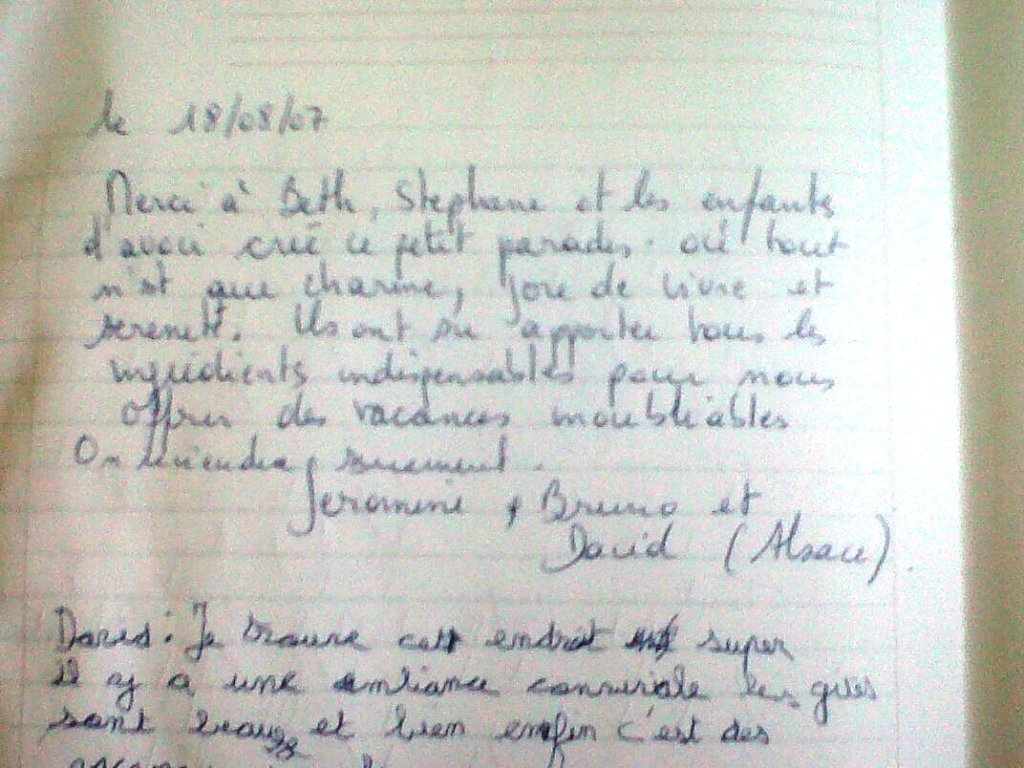 le 18/08/07
Merci à Beth, Stephane et les enfants
d'avoir creé ce petit parades. où tout
n'est que charme, joie de vivre et
serenité. Ils ont su apporter tous les
ingrédients indispensables pour nous
offrir des vacances inoubliables
On reviendra surement.
Jeromine, Bruno et
David (Alsace).
David: Je trouve cett endroit super
il ay a une ambiance conviviale les gites
sont beaux et bien enfin c'est des